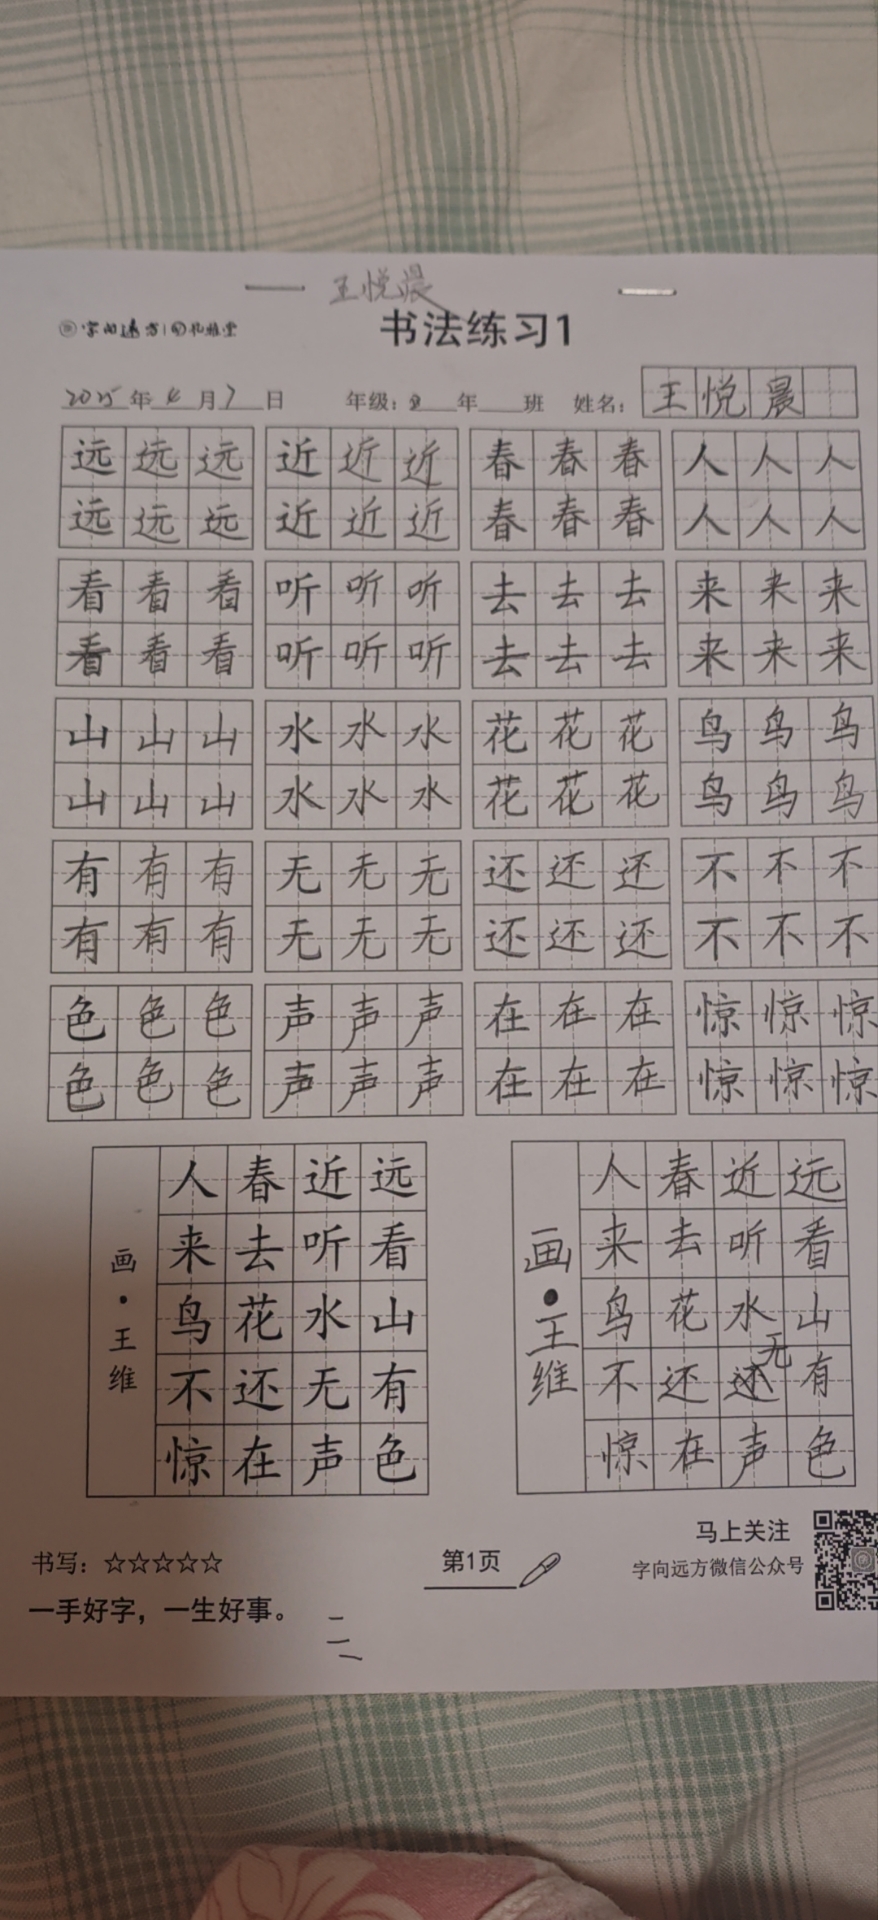 王悦晨
书法练习1
2025年4月7日 年级：2年 班 姓名：王悦晨
远远远 近近近 春春春 人人人
远远远 近近近 春春春 人人人
看看看 听听听 去去去 来来来
看看看 听听听 去去去 来来来
山山山 水水水 花花花 鸟鸟鸟
山山山 水水水 花花花 鸟鸟鸟
有有有 无无无 还还还 不不不
有有有 无无无 还还还 不不不
色色色 声声声 在在在 惊惊惊
色色色 声声声 在在在 惊惊惊
远看山有色
近听水无声
春去花还在
人来鸟不惊
画·王维
远看山有色
近听水无声
春去花还在
人来鸟不惊
画·王维
书写：☆☆☆☆☆
一手好字，一生好事。
第1页
马上关注
字向远方微信公众号